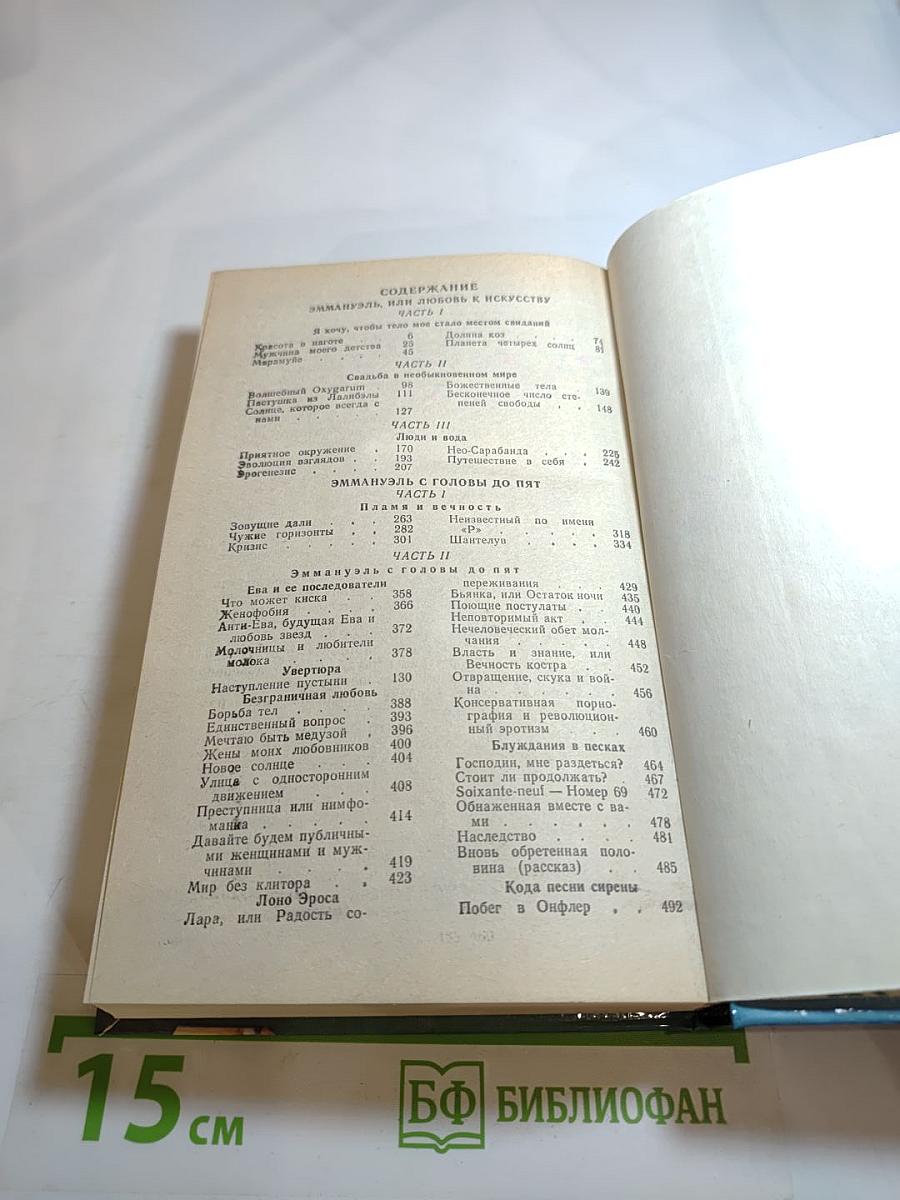 СОДЕРЖАНИЕ
ЭММАНУЭЛЬ, ИЛИ ЛЮБОВЬ К ИСКУССТВУ
ЧАСТЬ I
Я хочу, чтобы тело мое стало местом свиданий
Красота в наготе . . 6
Мужчина моего детства 25
Марамуйе . . . . 45
Долина коз . . . 74
Планета четырех солнц 81
ЧАСТЬ II
Свадьба в необыкновенном мире
Волшебный Oxygarum 98
Пастушка из Лалибэлы 111
Солнце, которое всегда с
нами . . . 127
Божественные тела . 139
Бесконечное число сте-
пеней свободы . . 148
ЧАСТЬ III
Люди и вода
Приятное окружение . 170
Эволюция взглядов . . 193
Эрогенезис . . . . 207
Нео-Сарабанда . . . 225
Путешествие в себя . 242
ЭММАНУЭЛЬ С ГОЛОВЫ ДО ПЯТ
ЧАСТЬ I
Пламя и вечность
Зовущие дали . . . 263
Чужие горизонты . . 282
Кризис . . . . . 301
Неизвестный по имени
«Р» . . . . . 318
Шантелув . . . . 334
ЧАСТЬ II
Эммануэль с головы до пят
Ева и ее последователи
Что может киска . . 358
Женофобия . . . . 366
Анти-Ева, будущая Ева и
любовь звезд . . . 372
Молочницы и любители
молока . . . . . 378
Увертюра
Наступление пустыни . 130
Безграничная любовь
Борьба тел . . . . 388
Единственный вопрос . 393
Мечтаю быть медузой . 396
Жены моих любовников 400
Новое солнце . . . 404
Улица с односторонним
движением . . . 408
Преступница или нимфо-
манка . . . . . 414
Давайте будем публичны-
ми женщинами и муж-
чинами . . . . 419
Мир без клитора . . 423
Лоно Эроса
Лара, или Радость со-
переживания . . . 429
Бьянка, или Остаток ночи 435
Поющие постулаты . . 440
Неповторимый акт . . 444
Нечеловеческий обет мол-
чания . . . . . 448
Власть и знание, или
Вечность костра . . 452
Отвращение, скука и вой-
на . . . . . . 456
Консервативная порно-
графия и революцион-
ный эротизм . . 460
Блуждания в песках
Господин, мне раздеться? 464
Стоит ли продолжать? . 467
Soixante-neuf — Номер 69 472
Обнаженная вместе с ва-
ми . . . . . . 478
Наследство . . . . 481
Вновь обретенная поло-
вина (рассказ) . . 485
Кода песни сирены
Побег в Онфлер . . 492
15 см
БФ БИБЛИОФАН